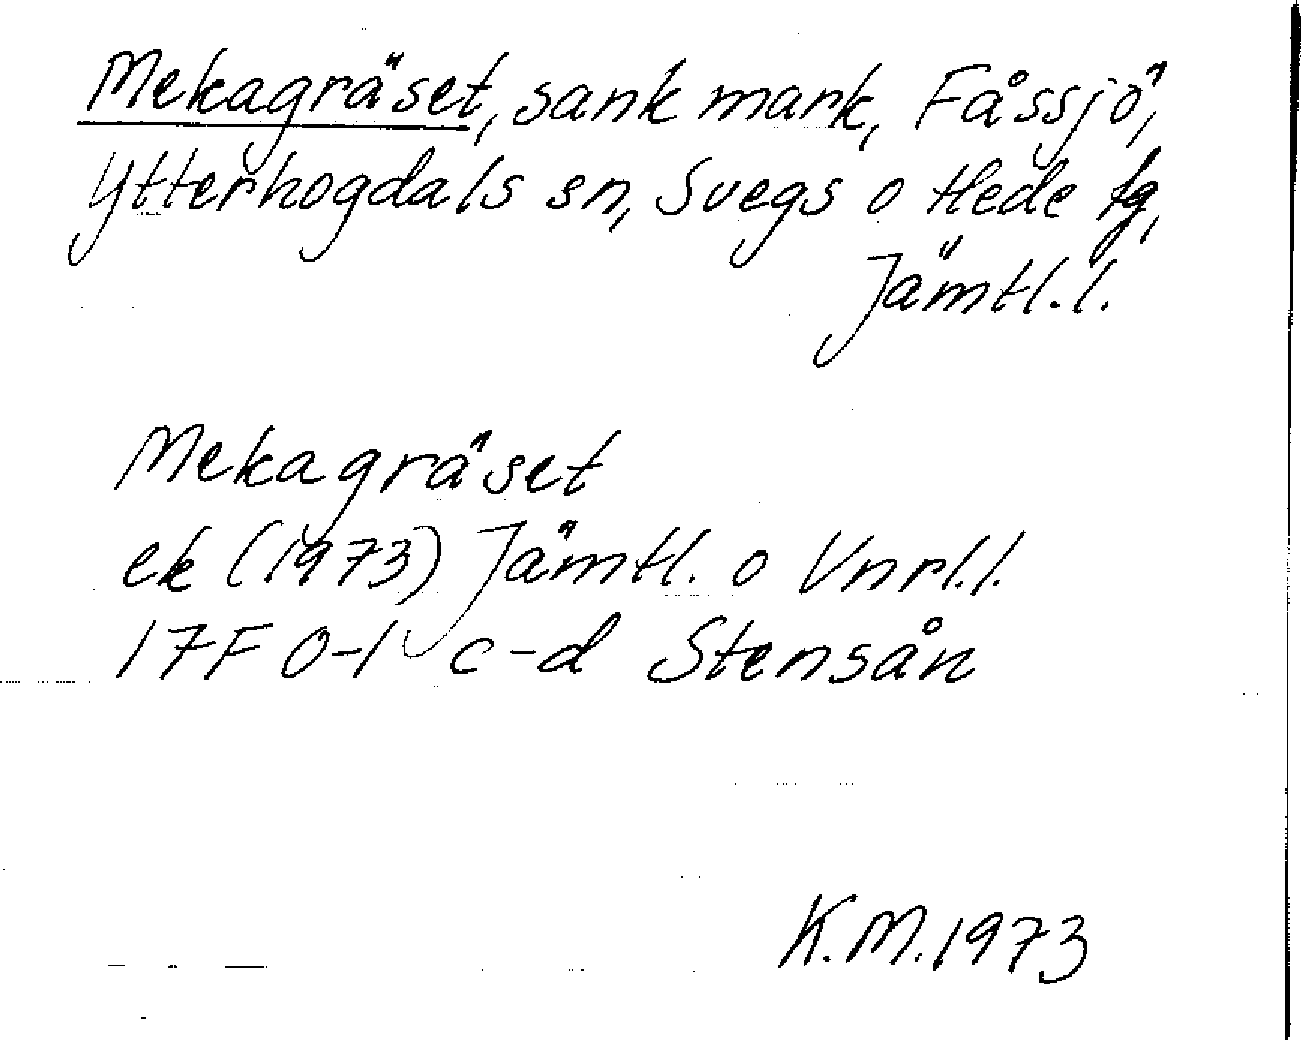 Mekagräset, sank mark, Fåssjö,
Ytterhogdals sn, Svegs o Hede tg,
Jämtl.l.
Mekagräset
ek (1973) Jämtl. o Vnrl.l.
17F 0-1 c-d Stensån
K.M.1973